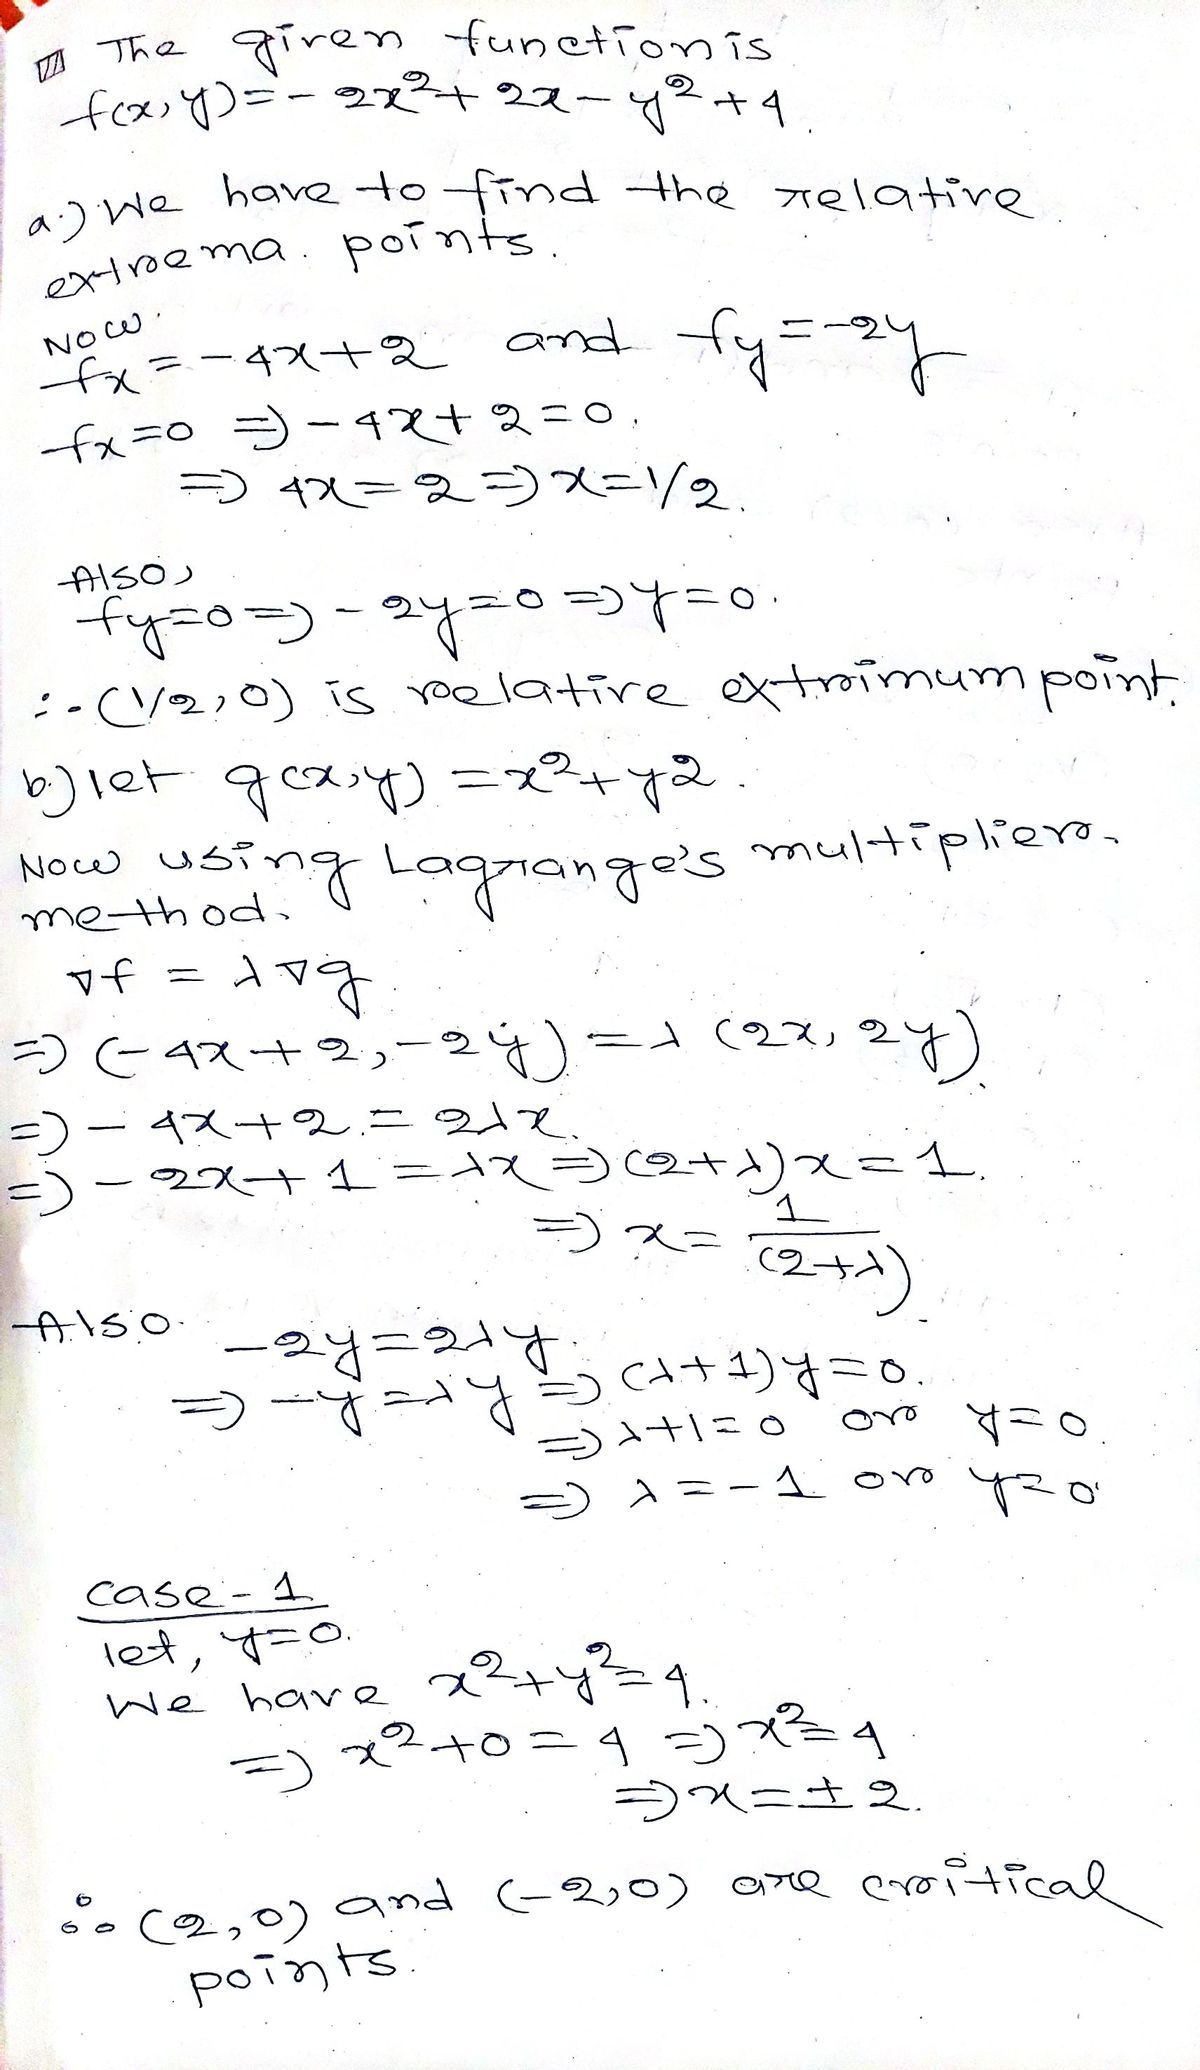 The given function is
f(x,y)=-2x²+2x-y²+4.
a.) We have to find the relative
extrema points.
Now.
fx=-4x+2 and fy=-2y
fx=0 ⇒ -4x+2=0.
⇒ 4x=2 ⇒ x=1/2.
Also,
fy=0 ⇒ -2y=0 ⇒ y=0.
∴ (1/2,0) is relative extrimum point.
b.) let g(x,y) = x²+y2.
Now using Lagrange's multiplier
method.
∇f = λ∇g
⇒ (-4x+2,-2y) = λ (2x, 2y)
⇒ -4x+2 = 2λx.
⇒ -2x+1 = λx ⇒ (2+λ)x = 1.
⇒ x = 1/(2+λ)
Also. -2y=2λy.
⇒ -y=λy ⇒ (λ+1)y=0.
⇒ λ+1=0 or y=0.
⇒ λ=-1 or y=0
case-1
let, y=0.
We have x²+y²=4.
⇒ x²+0=4 ⇒ x²=4
⇒ x=±2.
∴ (2,0) and (-2,0) are critical
points.